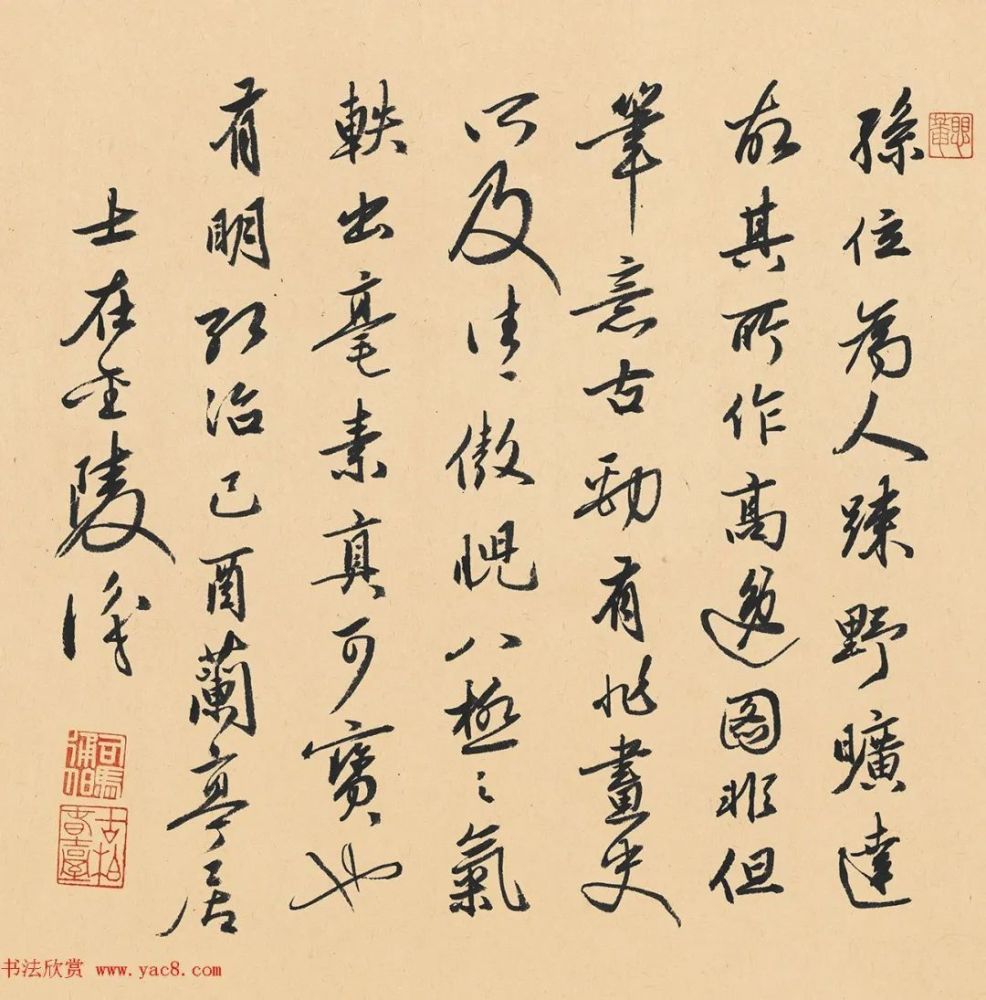 孫位為人踈野曠達
故其所作高逸圖非但
筆意古勁有非畫史
所及傲睨八極之氣
軼出毫素真可寶也
有明弘治己酉蘭亭居
士在金陵識
司馬通伯
书法欣赏 www.yac8.com